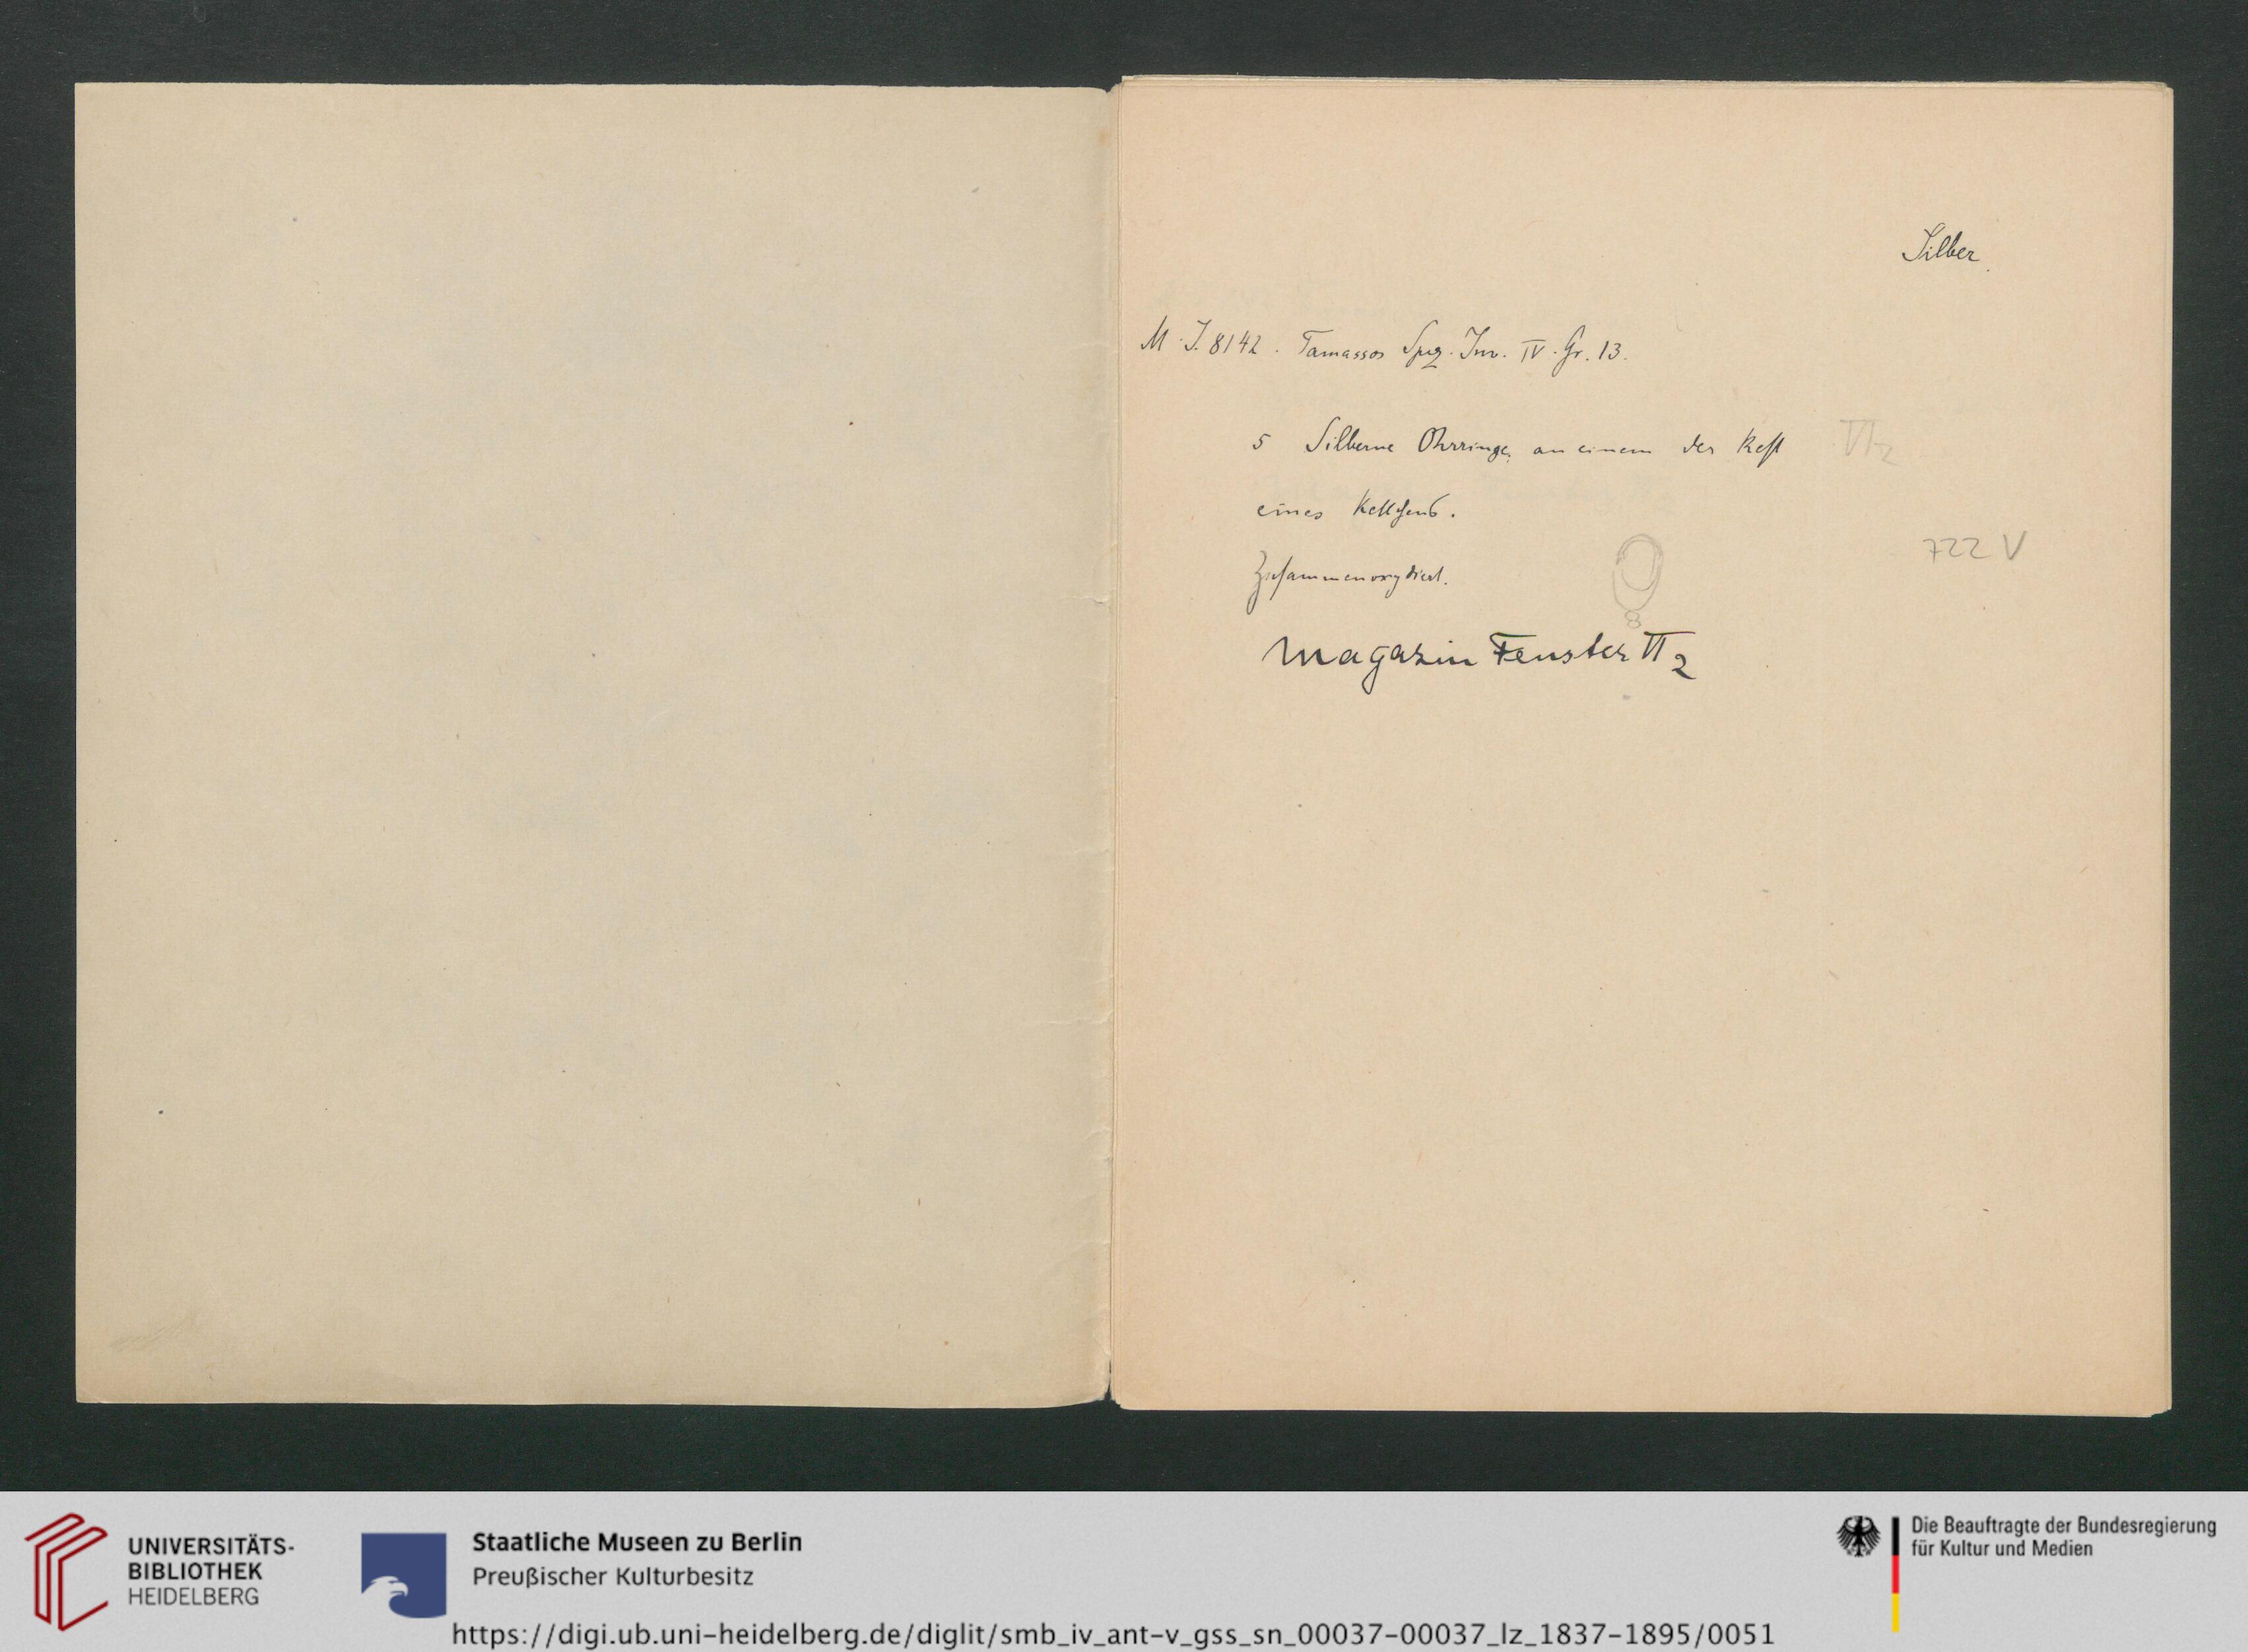 Silber.
M. J. 8142. Tamassos Spez. Inv. IV. Gr. 13.
5 Silberne Ohrringe, an einem der Rest VI2
eines Kettchens.
722 V
Zusammenoxydiert.
Magazin Fenster VI 2
UNIVERSITÄTS-
BIBLIOTHEK
HEIDELBERG
Staatliche Museen zu Berlin
Preußischer Kulturbesitz
Die Beauftragte der Bundesregierung
für Kultur und Medien
https://digi.ub.uni-heidelberg.de/diglit/smb_iv_ant-v_gss_sn_00037-00037_lz_1837-1895/0051